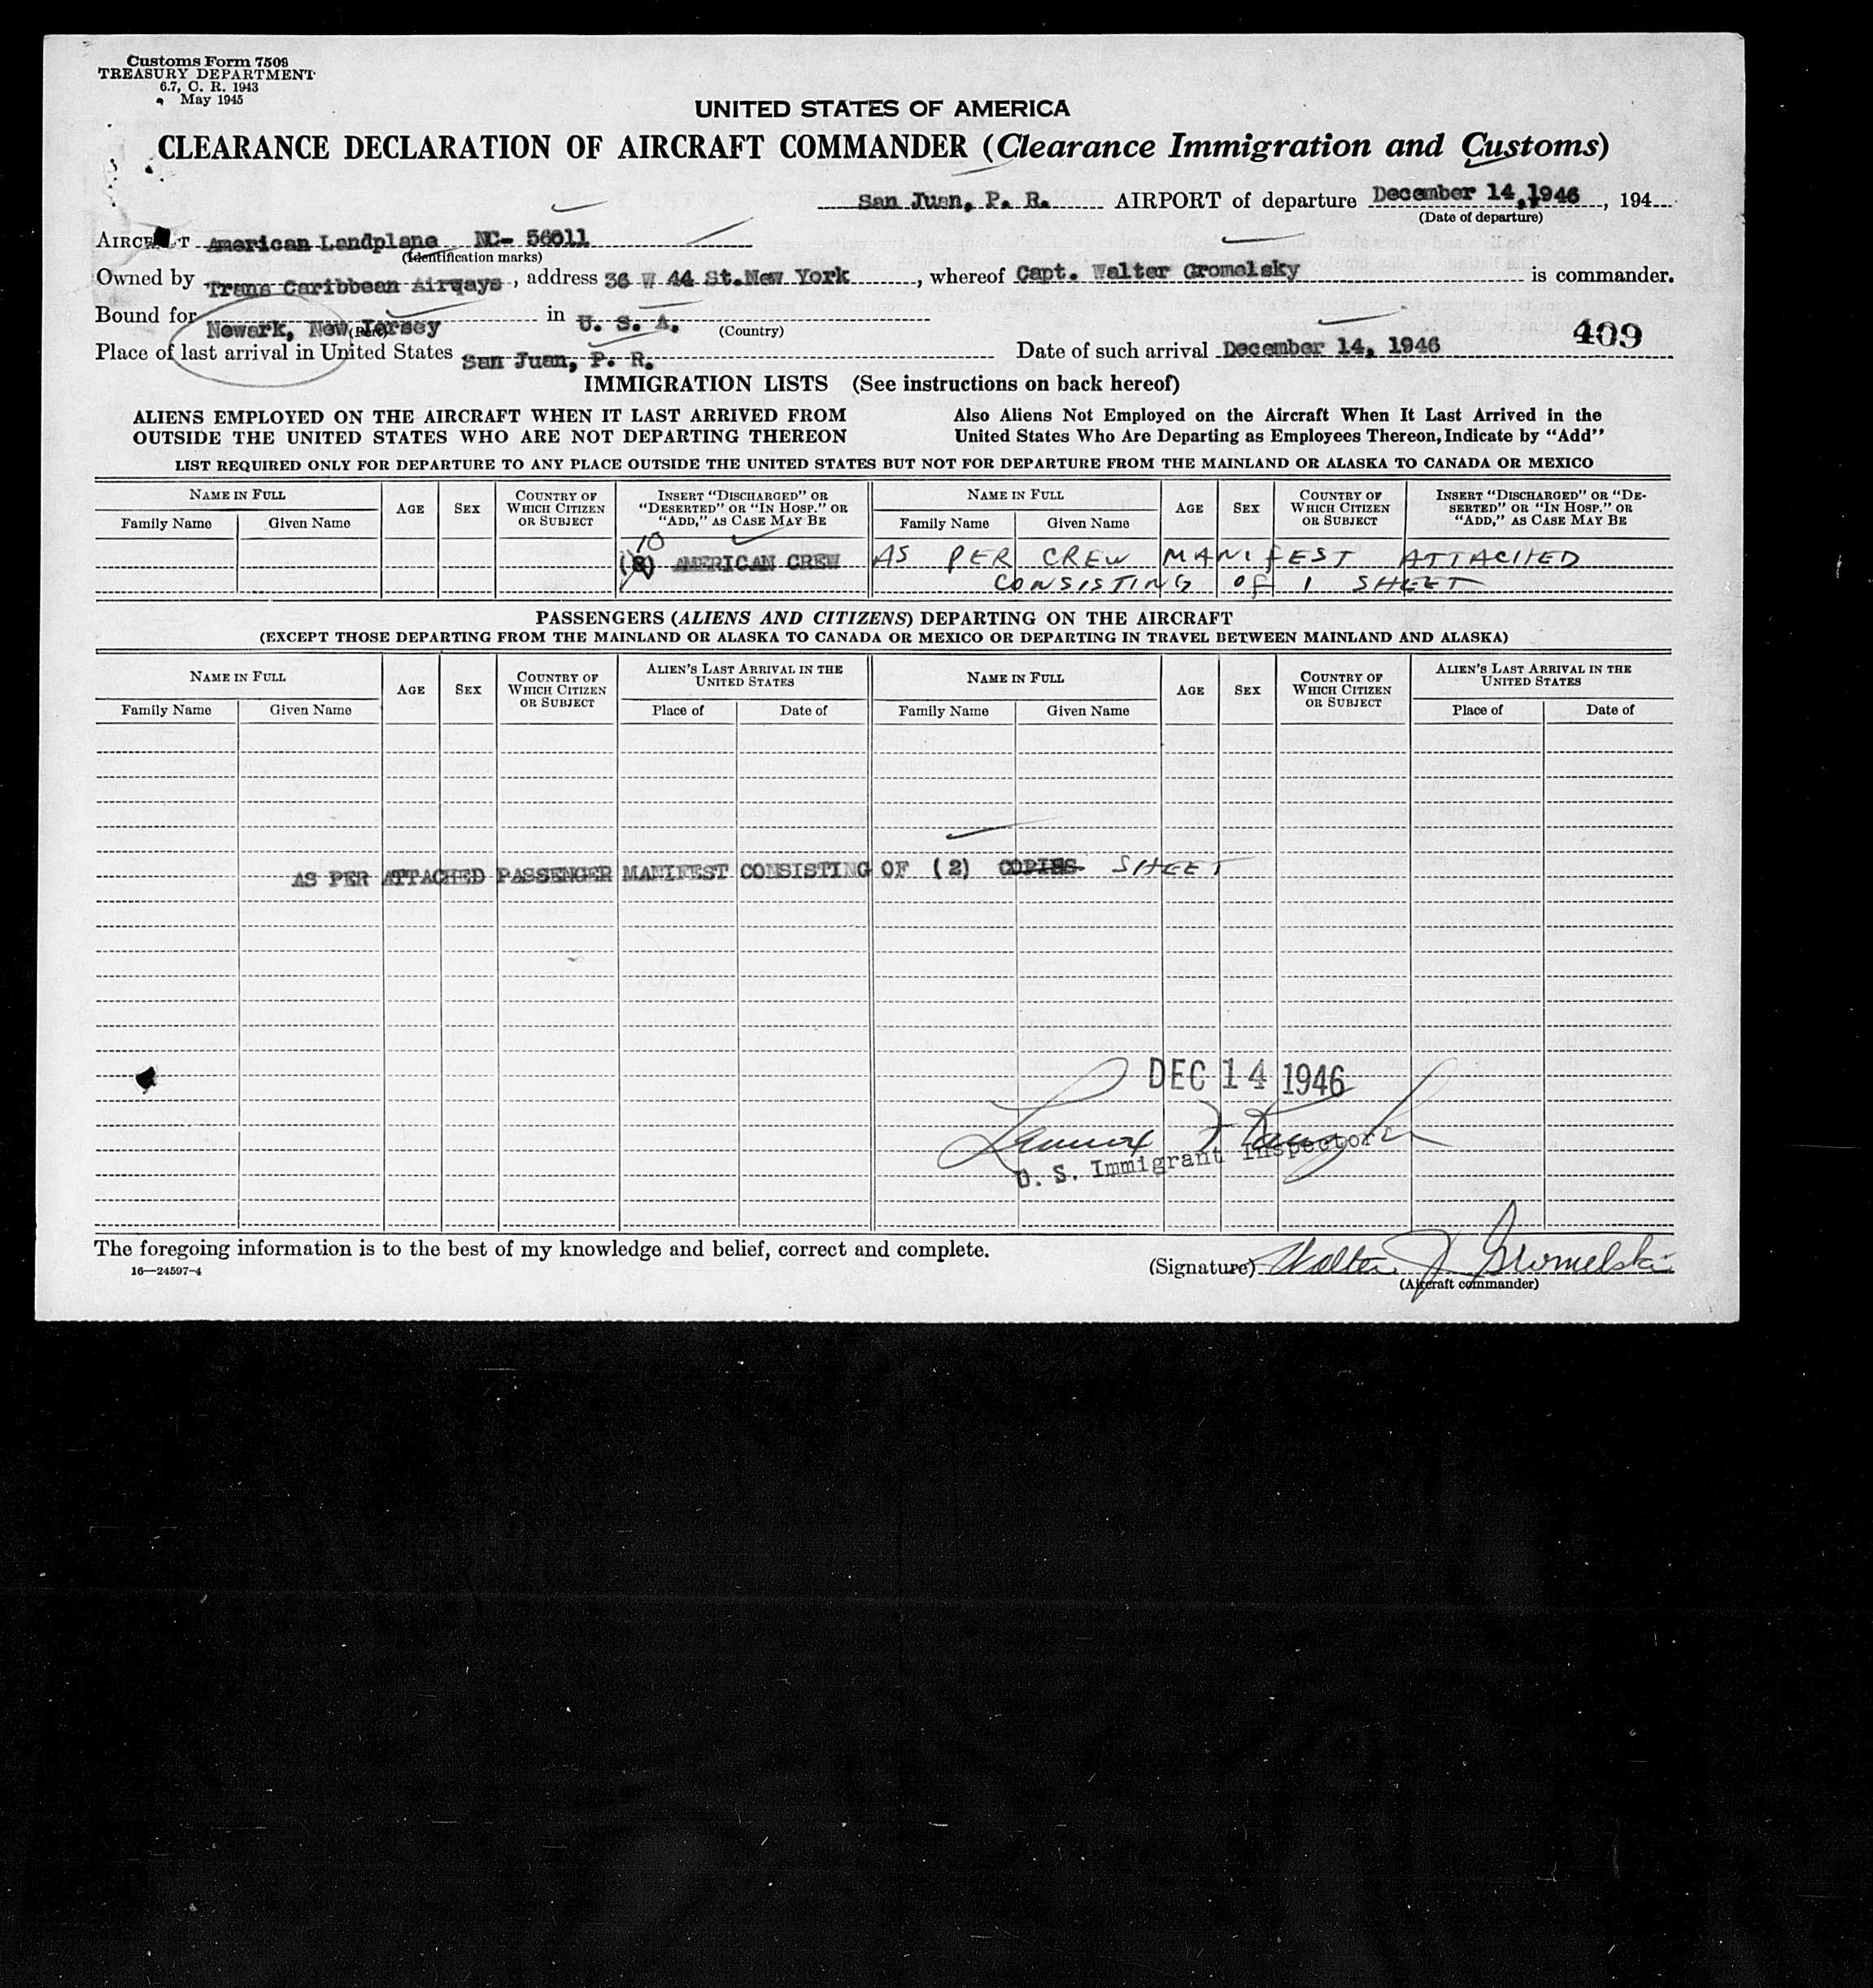 Customs Form 7509
TREASURY DEPARTMENT
6.7, C. R. 1943
May 1945
UNITED STATES OF AMERICA
CLEARANCE DECLARATION OF AIRCRAFT COMMANDER (Clearance Immigration and Customs)
San Juan, P. R. AIRPORT of departure December 14, 1946, 194
(Date of departure)
AIRCRAFT American Landplane NC- 56011
(Identification marks)
Owned by Trans Caribbean Airways, address 36 W 44 St. New York, whereof Capt. Walter Gromelsky is commander.
Bound for Newark, New Jersey in U. S. A.
(Port) (Country)
409
Place of last arrival in United States San Juan, P. R. Date of such arrival December 14, 1946
IMMIGRATION LISTS (See instructions on back hereof)
ALIENS EMPLOYED ON THE AIRCRAFT WHEN IT LAST ARRIVED FROM OUTSIDE THE UNITED STATES WHO ARE NOT DEPARTING THEREON
Also Aliens Not Employed on the Aircraft When It Last Arrived in the United States Who Are Departing as Employees Thereon, Indicate by "Add"
LIST REQUIRED ONLY FOR DEPARTURE TO ANY PLACE OUTSIDE THE UNITED STATES BUT NOT FOR DEPARTURE FROM THE MAINLAND OR ALASKA TO CANADA OR MEXICO
NAME IN FULL AGE SEX COUNTRY OF WHICH CITIZEN OR SUBJECT INSERT "DISCHARGED" OR "DESERTED" OR "IN HOSP." OR "ADD," AS CASE MAY BE NAME IN FULL AGE SEX COUNTRY OF WHICH CITIZEN OR SUBJECT INSERT "DISCHARGED" OR "DE-SERTED" OR "IN HOSP." OR "ADD," AS CASE MAY BE
Family Name Given Name Family Name Given Name
10
(8) AMERICAN CREW AS PER CREW MANIFEST ATTACHED
CONSISTING OF 1 SHEET
PASSENGERS (ALIENS AND CITIZENS) DEPARTING ON THE AIRCRAFT
(EXCEPT THOSE DEPARTING FROM THE MAINLAND OR ALASKA TO CANADA OR MEXICO OR DEPARTING IN TRAVEL BETWEEN MAINLAND AND ALASKA)
NAME IN FULL AGE SEX COUNTRY OF WHICH CITIZEN OR SUBJECT ALIEN'S LAST ARRIVAL IN THE UNITED STATES NAME IN FULL AGE SEX COUNTRY OF WHICH CITIZEN OR SUBJECT ALIEN'S LAST ARRIVAL IN THE UNITED STATES
Family Name Given Name Place of Date of Family Name Given Name Place of Date of
AS PER ATTACHED PASSENGER MANIFEST CONSISTING OF (2) COPIES SHEET
DEC 14 1946
U. S. Immigrant Inspector
The foregoing information is to the best of my knowledge and belief, correct and complete.
16—24597-4
(Signature) Walter J Gromelski
(Aircraft commander)